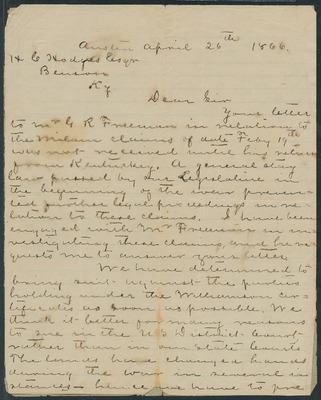 Austin April 26th 1866.
H C Hodges Esqr
Benson
Ky
Dear Sir
Your letter
to Mr G R Freeman in relation to
the Milam claims of date Feby 14th
was not received until his return
from Kentucky. A general stay
law passed by our Legislature in
the beginning of the war preven-
ted further legal proceedings in re-
lation to these claims. I have been
engaged with Mr Freeman in in-
vestigating these claims, and he re-
quests me to answer your letter
We have determined to
bring suit against the parties
holding under the Williamson cer-
tificates as soon as possible. We
think it better for many reasons
to sue in the U S District Court
rather than in our State Courts
The lands have changed hands
during the war in several in
stances - hence we have to pre